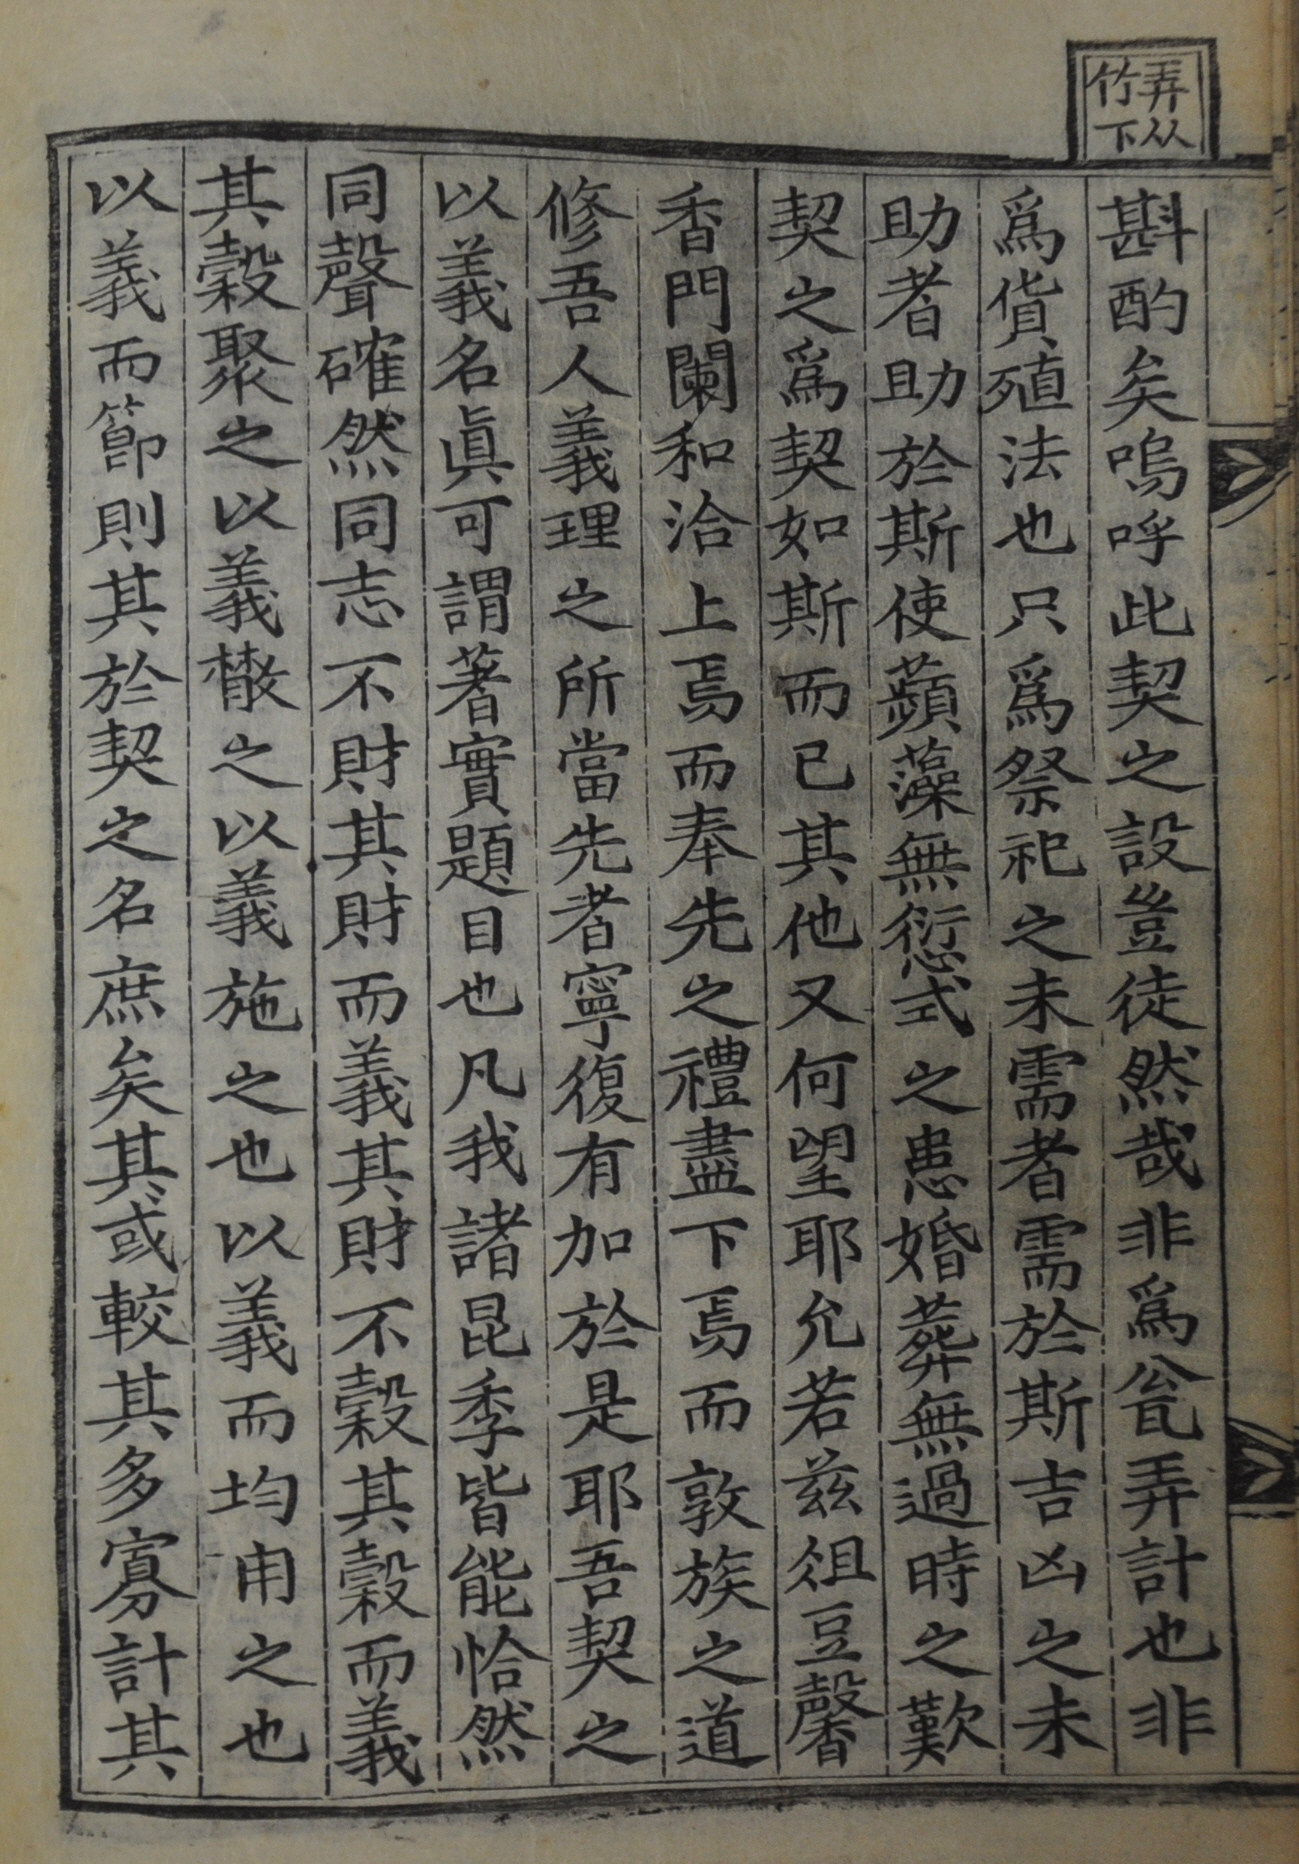 弄从
竹下
斟酌矣嗚呼此契之設豈徒然哉非爲瓮弄計也非
爲貨殖法也只爲祭祀之未需者需於斯吉凶之未
助者助於斯使蘋藻無愆式之患婚葬無過時之歎
契之爲契如斯而已其他又何望耶允若茲俎豆馨
香門闌和洽上焉而奉先之禮盡下焉而敦族之道
修吾人義理之所當先者寧復有加於是耶吾契之
以義名眞可謂著實題目也凡我諸昆季皆能恰然
同聲確然同志不財其財而義其財不穀其穀而義
其穀聚之以義橵之以義施之也以義而均用之也
以義而節則其於契之名庶矣其或較其多寡計其